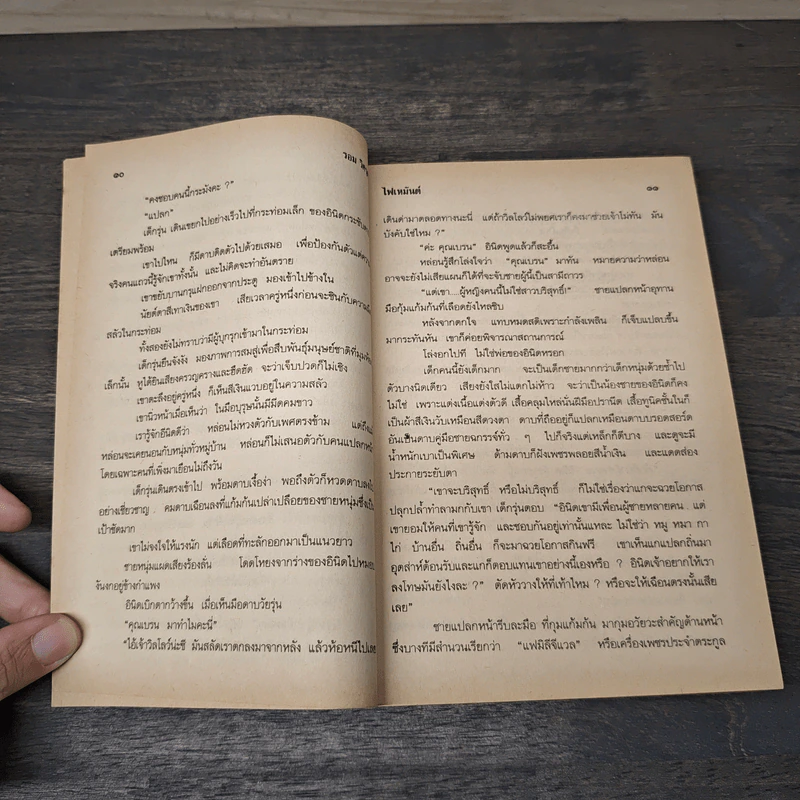 ๑๐
รอม
"คงชอบคนนี้กระมังคะ ?"
"แปลก"
เด็กรุ่น เดินเขยกไปอย่างเร็วไปที่กระท่อมเล็ก ของอินิดกระชับ
เตรียมพร้อม
เขาไปไหน ก็มีดาบติดตัวไปด้วยเสมอ เพื่อป้องกันตัวแต่
จริงคนแถวนี้รู้จักเขาทั้งนั้น และไม่คิดจะทำอันตราย
เขาขยับบานกรุแฝกออกจากประตู มองเข้าไปข้างใน
นัยต์ตาสีเทาเงินของเขา เสียเวลาครู่หนึ่งก่อนจะชินกับความ
สลัวในกระท่อม
ทั้งสองยังไม่ทราบว่ามีผู้บุกรุกเข้ามาในกระท่อม
เด็กรุ่นยืนจังงัง มองภาพการสมสู่เพื่อสืบพันธุ์มนุษย์ชาติที่มุม
เล็กนั้น หูได้ยินเสียงครวญครางและฮึดฮัด จะว่าเจ็บปวดก็ไม่เชิง
เขาตะลึงอยู่ครู่หนึ่ง ก็เห็นสีเงินแวบอยู่ในความสลัว
เขานิ่วหน้าเมื่อเห็นว่า ในมือบุรุษนั้นมีมีดคมขาว
เรารู้จักอินิดดีว่า หล่อนไม่หวงตัวกับเพศตรงข้าม แต่ถึง
หล่อนจะเคยนอนกับหนุ่มทั่วหมู่บ้าน หล่อนก็ไม่เสนอตัวกับคนแปลก
โดยเฉพาะคนที่เพิ่งมาเยือนไม่ถึงวัน
เด็กรุ่นเดินตรงเข้าไป พร้อมดาบเงื้อง่า พอถึงตัวก็หวดดาบลง
อย่างเชี่ยวชาญ คมดาบเฉือนลงที่แก้มก้นเปล่าเปลือยของชายหนุ่มซึ่ง
เป้าชัดมาก
เขาไม่จงใจให้แรงนัก แต่เลือดก็ทะลักออกมาเป็นแนวยาว
ชายหนุ่มแผดเสียงร้องลั่น โดดโหยงจากร่างของอินิดไป
งันงกอยู่ข้างกำแพง
อินิดเบิกตากว้างขึ้น เมื่อเห็นมือดาบวัยรุ่น
"คุณเบรน มาทำไมคะนี่"
"ไอ้เจ้าวิลโลว์น่ะซี มันสลัดเราตกลงมาจากหลัง แล้วห้อหนีไป
ไฟเหมันต์
๑๑
เดินด่ามาตลอดทางนะนี่ แต่ถ้าวิลโลว์ไม่พยศเราก็คงมาช่วยเจ้าไม่ทัน มัน
บังคับใช่ไหม ?"
"ค่ะ คุณเบรน" อินิดพูดแล้วก็สะอื้น
หล่อนรู้สึกโล่งใจว่า "คุณเบรน" มาทัน หมายความว่าหล่อน
อาจจะยังไม่เสียแผนก็ได้ที่จะจับชายผู้นี้เป็นสามีถาวร
"แต่เขา....ผู้หญิงคนนี้ไม่ใช่สาวบริสุทธิ์!" ชายแปลกหน้าอุทาน
มือกุ้มแก้มก้นที่เลือดยังไหลซิบ
หลังจากตกใจ แทบหมดสติเพราะกำลังเพลิน ก็เจ็บแปลบขึ้น
มากระทันหัน เขาก็ค่อยพิจารณาสถานการณ์
โล่งอกไปที ไม่ใช่พ่อของอินิดหรอก
เด็กคนนี้ยังเด็กมาก จะเป็นเด็กชายมากกว่าเด็กหนุ่มด้วยซ้ำไป
ตัวบางนิดเดียว เสียงยังใสไม่แตกไม่ห้าว จะว่าเป็นน้องชายของอินิดก็คง
ไม่ใช่ เพราะแต่งเนื้อแต่งตัวดี เสื้อคลุมไหล่นั่นฝีมือปรานีต เสื้อทูนิคชั้นในก็
เป็นผ้าสีเงินวับเหมือนสีดวงตา ดาบที่ถืออยู่ก็แปลกเหมือนดาบบรอดสอร์ด
อันเป็นดาบคู่มือชายฉกรรจ์ทั่ว ๆ ไปก็จริงแต่เหล็กก็ตีบาง และดูจะมี
น้ำหนักเบาเป็นพิเศษ ด้ามดาบก็ฝังเพชรพลอยสีน้ำเงิน และแดดส่อง
ประกายระยับตา
"เขาจะบริสุทธิ์ หรือไม่บริสุทธิ์ ก็ไม่ใช่เรื่องว่าแกจะฉวยโอกาส
ปลุกปล้ำทำลามกกับเขา เด็กรุ่นตอบ "อินิดเขามีเพื่อนผู้ชายหลายคน แต่
เขายอมให้คนที่เขารู้จัก และชอบกันอยู่เท่านั้นแหละ ไม่ใช่ว่า หมู หมา กา
ไก่ บ้านอื่น ถิ่นอื่น ก็จะมาฉวยโอกาสกินฟรี เขาเห็นแกแปลกถิ่นมา
อุตส่าห์ต้อนรับและแกก็ตอบแทนเขาอย่างนี้เองหรือ ? อินิดเจ้าอยากให้เรา
ลงโทษมันยังไงละ ?" ตัดหัววางให้ที่เท้าไหม ? หรือจะให้เฉือนตรงนั้นเสีย
เลย"
ชายแปลกหน้ารีบละมือ ที่กุมแก้มก้น มากุมอวัยวะสำคัญด้านหน้า
ซึ่งบางทีมีสำนวนเรียกว่า "แฟมิลีจีแวล" หรือเครื่องเพชรประจำตระกูล